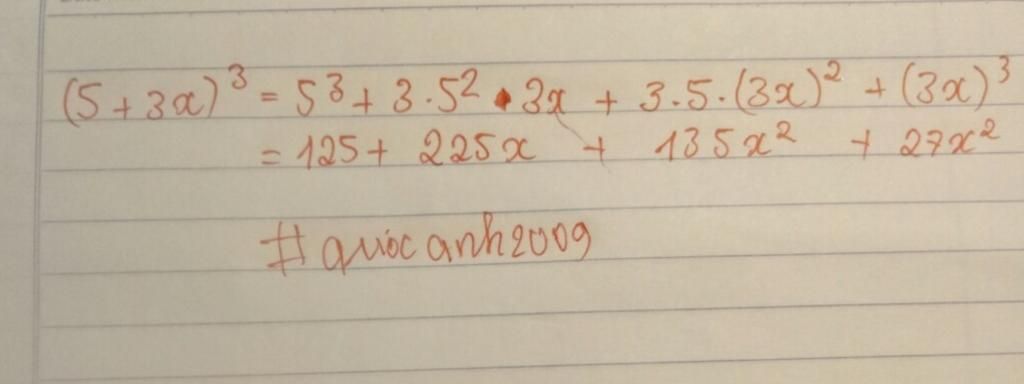 (5 + 3x)³ = 5³ + 3.5² . 3x + 3.5.(3x)² + (3x)³
= 125 + 225x + 135x² + 27x²
#quôcanh2009